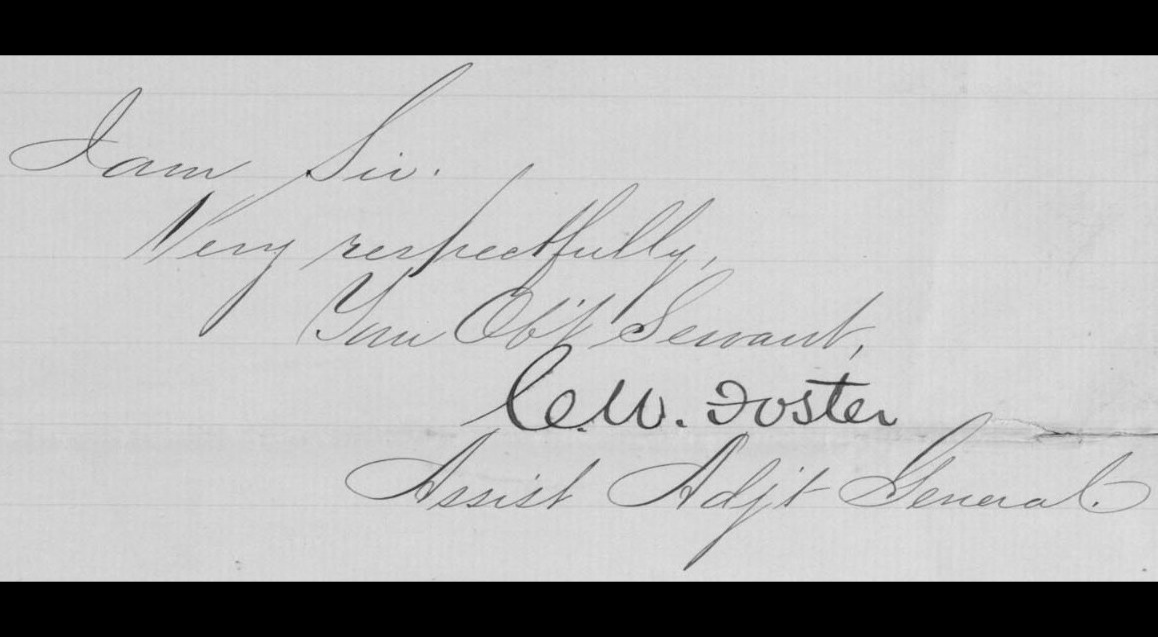 I am Sir.
Very respectfully,
Your Obt Servant,
C. W. Foster
Assist Adjt General.